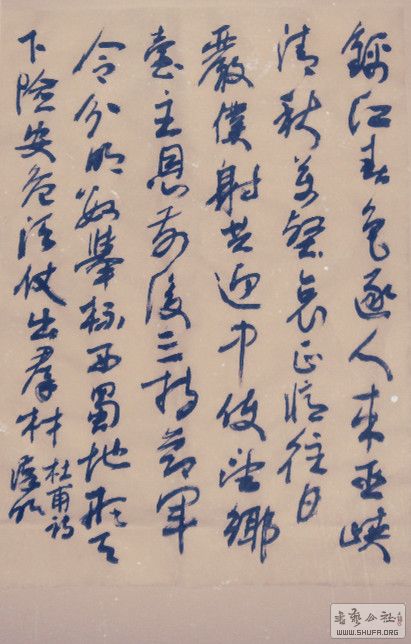 錦江春色逐人來巫峽
清秋萬壑哀正憶往日
嚴僕射共迎中使望鄉
臺主恩前後三持節軍
令分明數舉杯西蜀地形天
下險安危須仗出羣材
杜甫詩
书艺公社
WWW.SHUFA.ORG